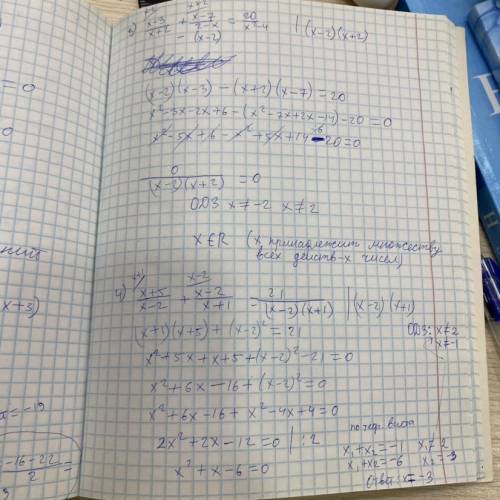 x-3/x+2 + x-7/2-x = 20/x²-4 | (x-2)(x+2)
- (x-2)
(x-2)(x-3) - (x+2)(x-7) = 20
x²-3x-2x+6-(x²-7x+2x-14)-20=0
x²-5x+6-x²+5x+14-20=0
0/(x-2)(x+2) = 0
ОДЗ x≠-2 x≠2
x∈R (x принадлежит множеству
всех действ-х чисел)
4) x+5/x-2 + x-2/x+1 = 21/(x-2)(x+1) | (x-2)(x+1)
(x+1)(x+5)+(x-2)²=21
ОДЗ: x≠2
x≠-1
x²+5x+x+5+(x-2)²-21=0
x²+6x-16+(x-2)²=0
x²+6x-16+x²-4x+4=0
2x²+2x-12=0 | :2
x²+x-6=0
по теор. Виета
x₁+x₂=-1 x₁≠2
x₁+x₂=-6 x₂=-3
Ответ: x=-3
=0
0
x+3)
x=-19
-16-22/2 =